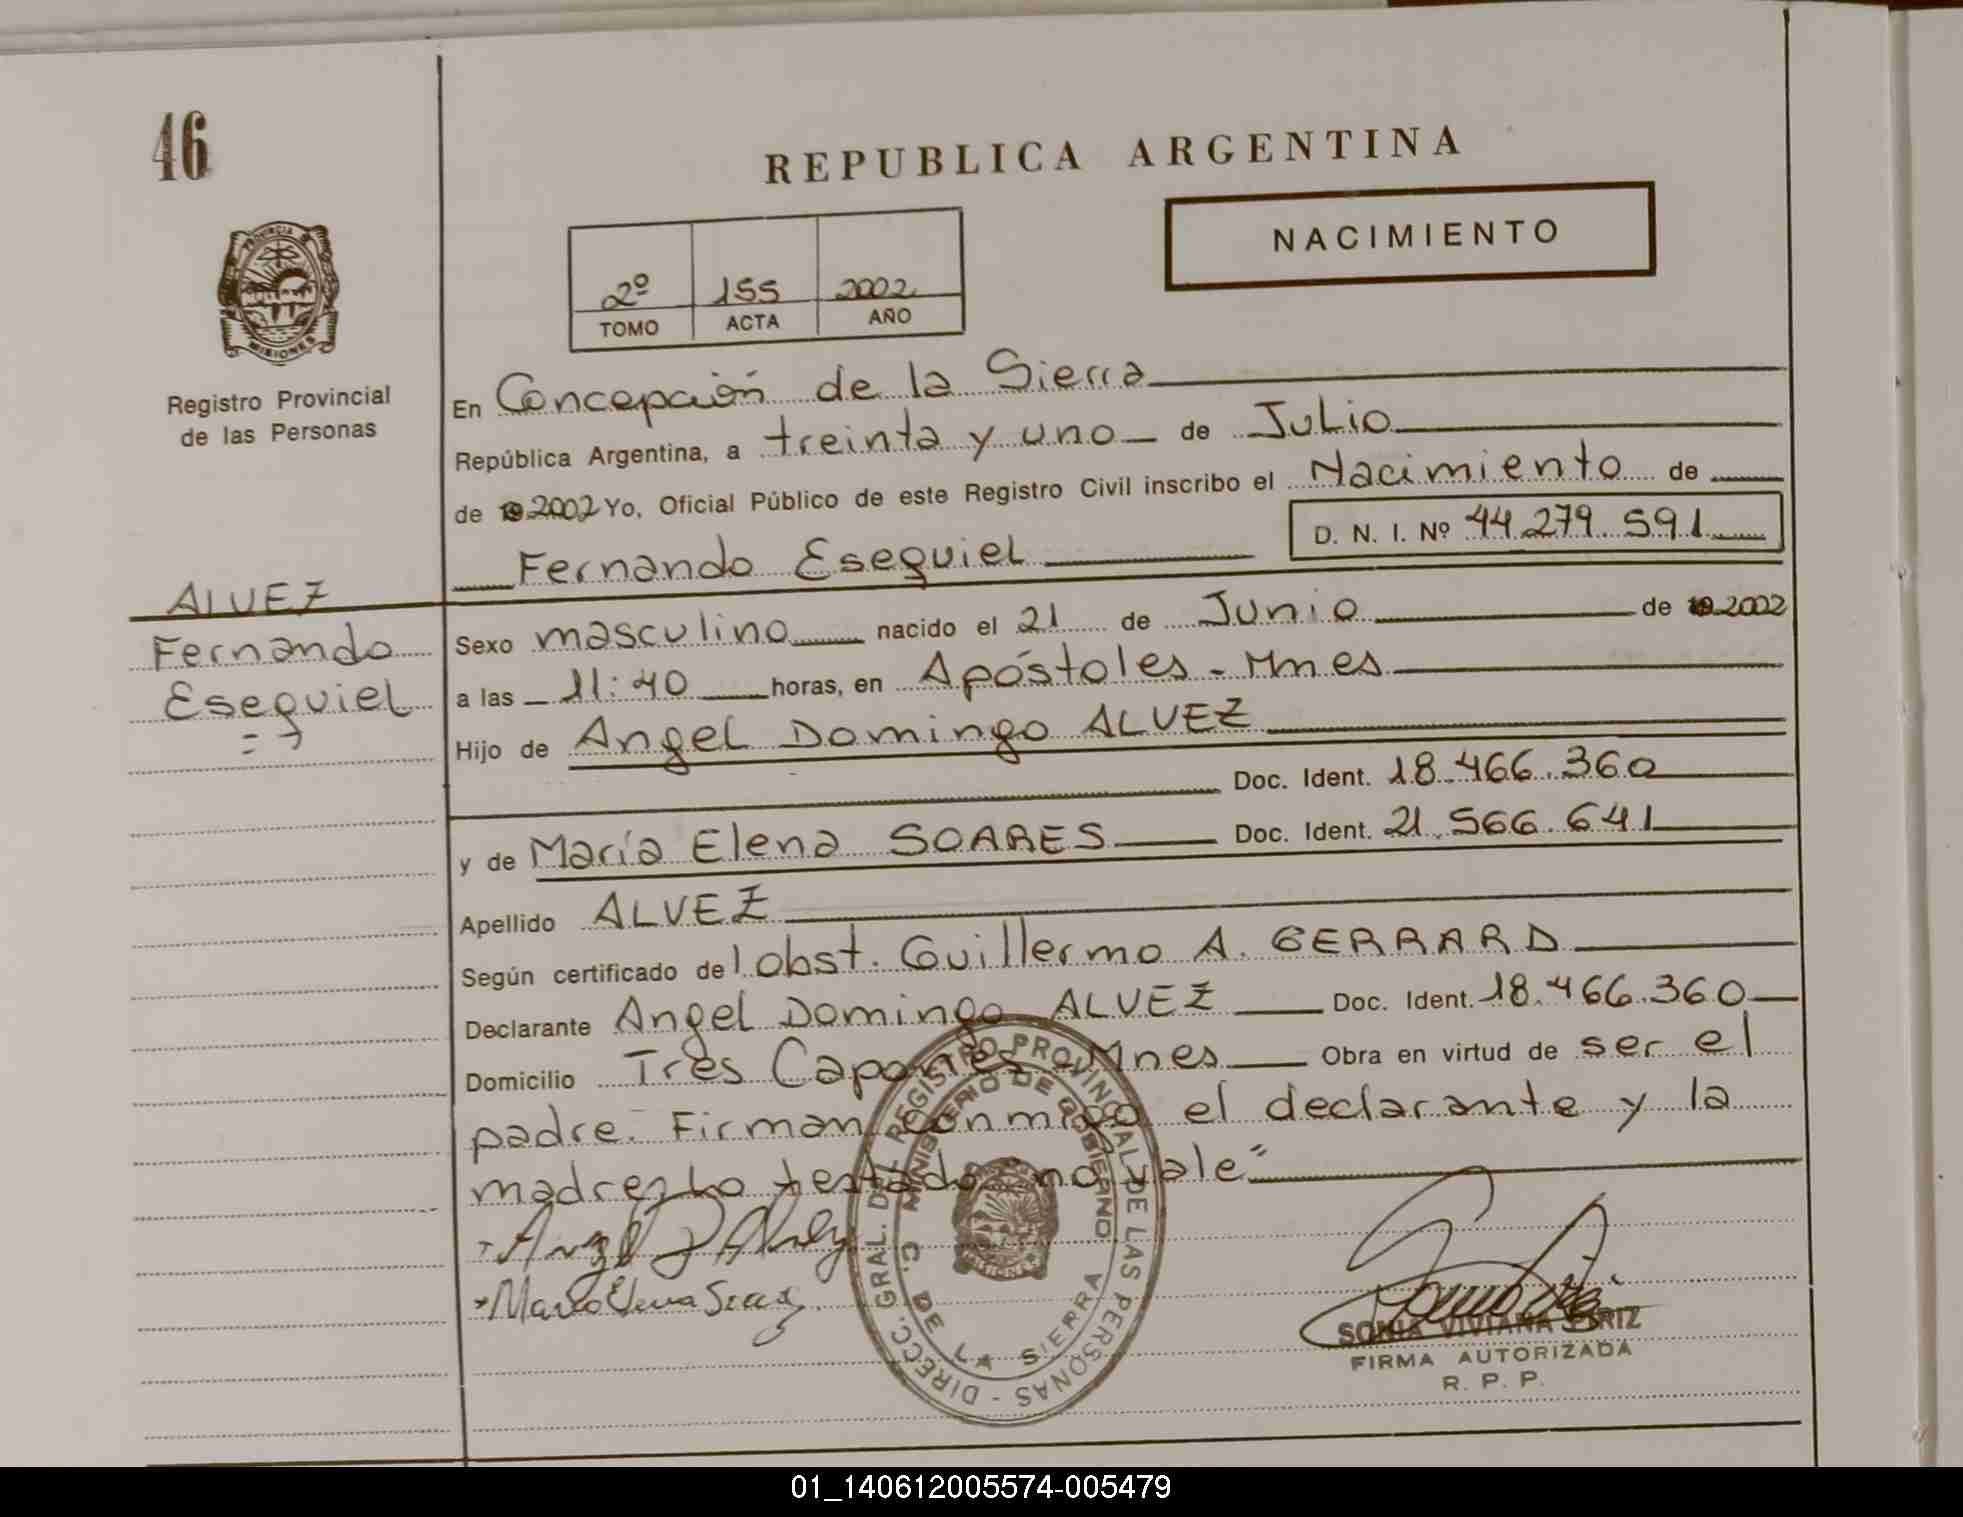 46
REPUBLICA ARGENTINA
NACIMIENTO
2º 155 2002
TOMO ACTA AÑO
PROVINCIA DE MISIONES
Registro Provincial
de las Personas
En Concepción de la Sierra
República Argentina, a treinta y uno de Julio
de 19 2002 Yo, Oficial Público de este Registro Civil inscribo el Nacimiento de
Fernando Esequiel D. N. I. Nº 44.279.591
ALVEZ
Fernando
Esequiel
Sexo masculino nacido el 21 de Junio de 19 2002
a las 11:40 horas, en Apóstoles - Mnes
Hijo de Angel Domingo ALVEZ
Doc. Ident. 18.466.360
y de María Elena SOARES Doc. Ident. 21.566.641
Apellido ALVEZ
Según certificado del obst. Guillermo A. GERRARD
Declarante Angel Domingo ALVEZ Doc. Ident. 18.466.360
Domicilio Tres Capones - Mnes Obra en virtud de ser el
padre. Firman conmigo el declarante y la
madre. Lo testado "no vale"
DIRECC. GRAL. DEL REGISTRO PROVINCIAL DE LAS PERSONAS -
MINISTERIO DE GOBIERNO
C. DE LA SIERRA
MISIONES
SONIA VIVIANA PIRIZ
FIRMA AUTORIZADA
R. P. P.
01_140612005574-005479